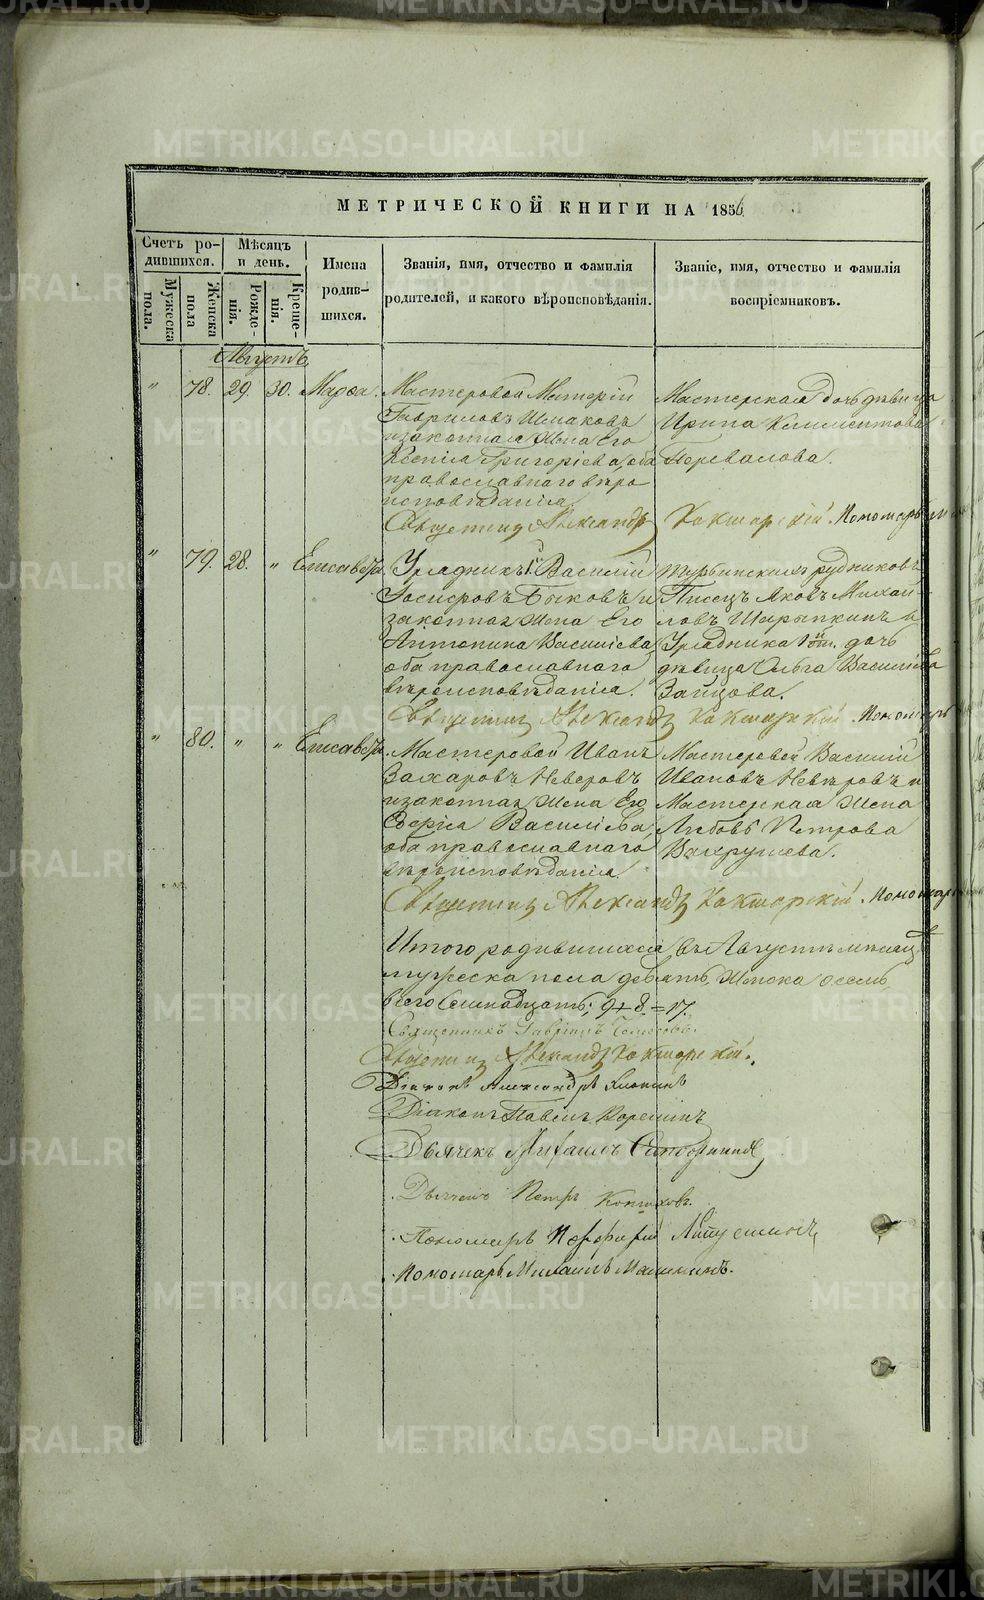 МЕТРИЧЕСКОЙ КНИГИ НА 1856
Счетъ родившихся.
Мужеска пола.
Женска пола
Мѣсяцъ и день.
Рожденія.
Крещенія.
Имена родившихся.
Званія, имя, отчество и фамилія родителей, и какого вѣроисповѣданія.
Званіе, имя, отчество и фамилія воспріемниковъ.
Августъ
" 78. 29. 30. Марѳа.
Мастеровой
Гавриловъ Шмаковъ
и законная жена Его
Ксенія Григоріева, оба
православнаго вѣро
исповѣданія
Мастерская дочь дѣвица
Ирина Климентова
Перевалова.
Священникъ Александръ Кокшарскій. Пономарь
" 79. 28. " Елисавета.
Урядникъ Василій
Быковъ и
законная жена Его
Антонина Васильева,
оба православнаго
вѣроисповѣданія.
Турьинскихъ рудниковъ
Писецъ Яковъ Михай-
ловъ Шарыпкинъ и
Урядника дочь
дѣвица Ольга Васильева
Зайцова.
Священникъ Александръ Кокшарскій. Пономарь
" 80. " " Елисавета.
Мастеровой Иванъ
Захаровъ Неверовъ
и законная жена Его
Васильева,
оба православнаго
вѣроисповѣданія
Мастеровой Василій
Ивановъ Невѣровъ и
Мастерская жена
Любовь Петрова
Вахрушева.
Священникъ Александръ Кокшарскій. Пономарь
Итого родившихся въ Августѣ мѣсяцѣ
мужеска пола девять, женска осемь,
всего семнадцать; 9 + 8. = 17.
Священникъ Гавріилъ
Священникъ Александръ Кокшарскій.
Діаконъ Александръ
Діаконъ Павелъ
Дьячекъ Михаилъ
Дьячекъ Петръ
Пономарь Порфирій
Пономарь Михаилъ
METRIKI.GASO-URAL.RU